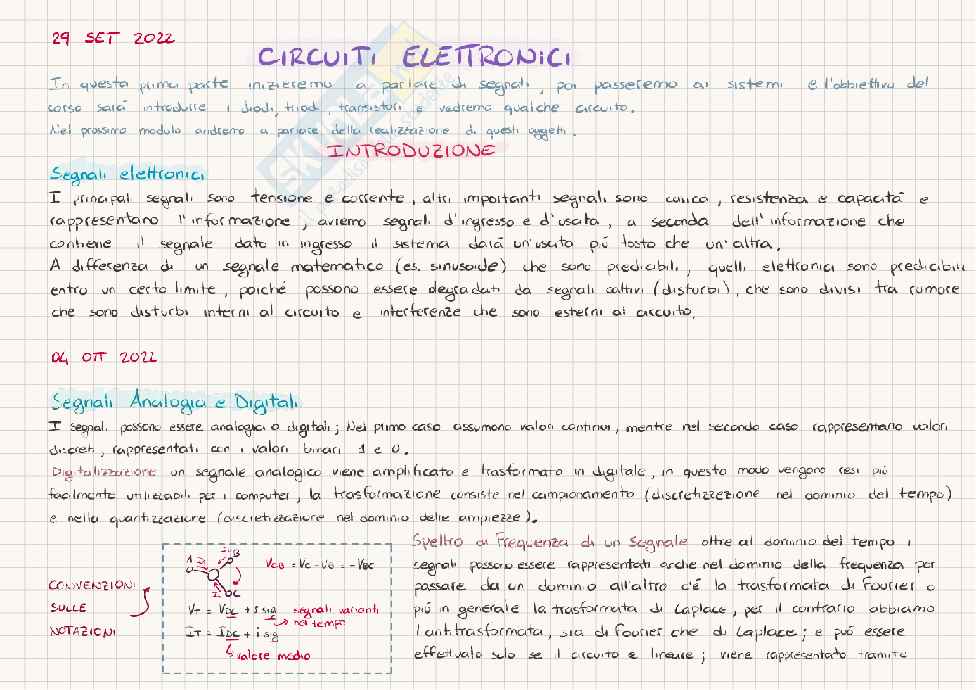 29 SET 2022
CIRCUITI ELETTRONICI
In questa prima parte inizieremo a parlare di segnali, poi passeremo ai sistemi e l'obbiettivo del
corso sarà introdurre i diodi, triodi, transistori e vedremo qualche circuito.
Nel prossimo modulo andremo a parlare della realizzazione di questi oggetti.
INTRODUZIONE
Segnali elettronici
I principali segnali sono tensione e corrente, altri importanti segnali sono carica, resistenza e capacità e
rappresentano l'informazione, avremo segnali d'ingresso e d'uscita, a seconda dell'informazione che
contiene il segnale dato in ingresso il sistema darà un'uscita più tosto che un'altra.
A differenza di un segnale matematico (es. sinusoide) che sono predicibili, quelli elettronici sono predicibili
entro un certo limite, poiché possono essere degradati da segnali cattivi (disturbi), che sono divisi tra rumore
che sono disturbi interni al circuito e interferenze che sono esterni al circuito.
04 OTT 2022
Segnali Analogici e Digitali
I segnali possono essere analogici o digitali; Nel primo caso assumono valori continui, mentre nel secondo caso rappresentano valori
discreti, rappresentati con i valori binari 1 e 0.
Digitalizzazione un segnale analogico viene amplificato e trasformato in digitale, in questo modo vengono resi più
facilmente utilizzabili per i computer, la trasformazione consiste nel campionamento (discretizzezione nel dominio del tempo)
e nella quantizzazione (discretizzazione nel dominio delle ampiezze).
CONVENZIONI
SULLE
NOTAZIONI
VT = VDC + s sig segnali varianti
nel tempo
IT = IDC + i sg
valore medio
Spettro di Frequenza di un Segnale oltre al dominio del tempo i
segnali possono essere rappresentati anche nel dominio della frequenza per
passare da un dominio all'altro c'è la trasformata di Fourier o
più in generale la trasformata di Laplace, per il contrario abbiamo
l'antitrasformata, sia di Fourier che di Laplace; e può essere
effettuato solo se il circuito è lineare; viene rappresentato tramite